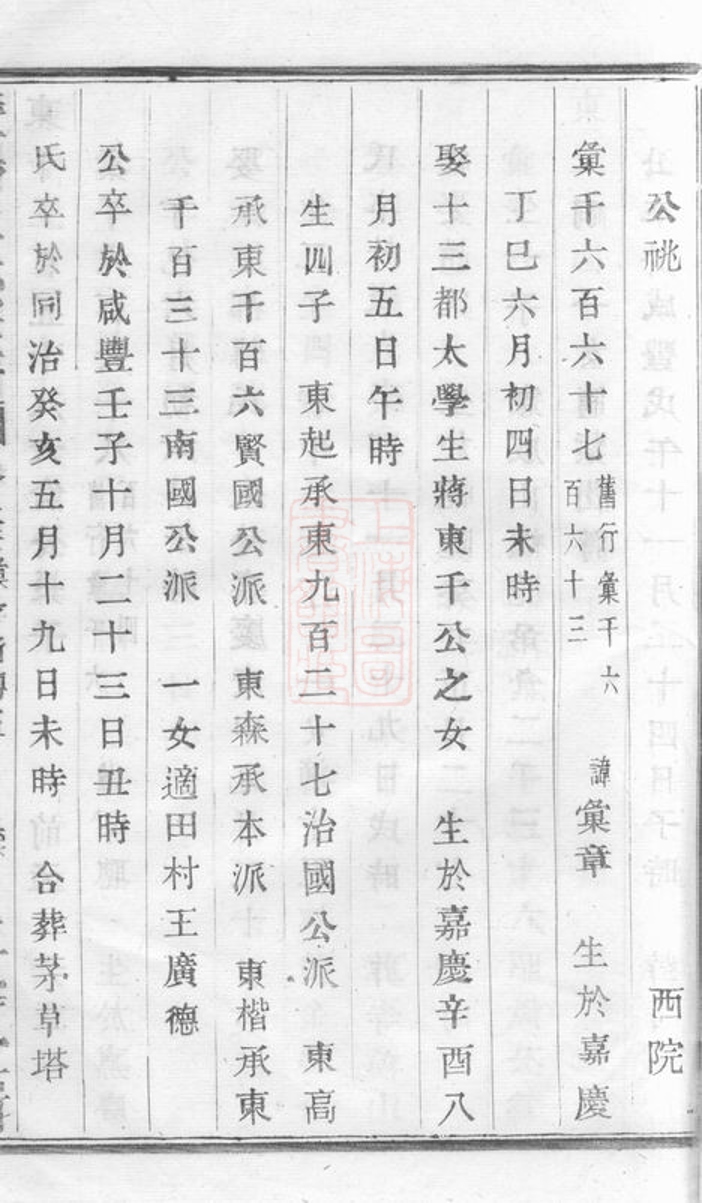 公祧　西院
彙千六百六十七 舊行彙千六百六十三 諱彙章 生於嘉慶
丁巳六月初四日未時
娶十三都太學生蔣東千公之女 生於嘉慶辛酉八
月初五日午時
生四子 東起承東九百二十七治國公派 東高
承東千百六賢國公派 東森承本派 東楷承東
千百三十三南國公派 一女適田村王廣德
公卒於咸豐壬子十月二十三日丑時
氏卒於同治癸亥五月十九日未時 合葬茅草塔